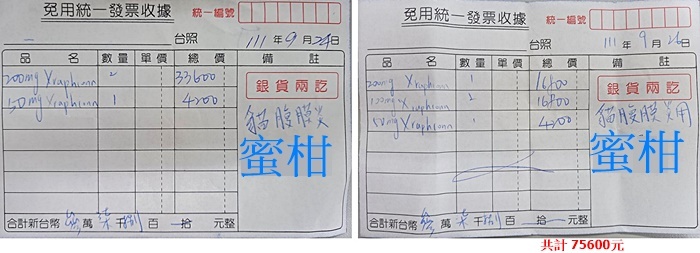 免用統一發票收據
統一編號
台照
111年9月24日
品名 數量 單價 總價 備註
200mg Xraphconn 2 33600
150mg Xraphconn 1 4200
銀貨兩訖
貓腹膜炎
蜜柑
合計新台幣 參萬柒千捌百 拾 元整
免用統一發票收據
統一編號
台照
111年9月26日
品名 數量 單價 總價 備註
200mg Xraphconn 1 16800
Xraphconn 2 16800
Xraphconn 1 4200
銀貨兩訖
貓腹膜炎用
蜜柑
合計新台幣 參萬柒千捌百 拾 元整
共計 75600元